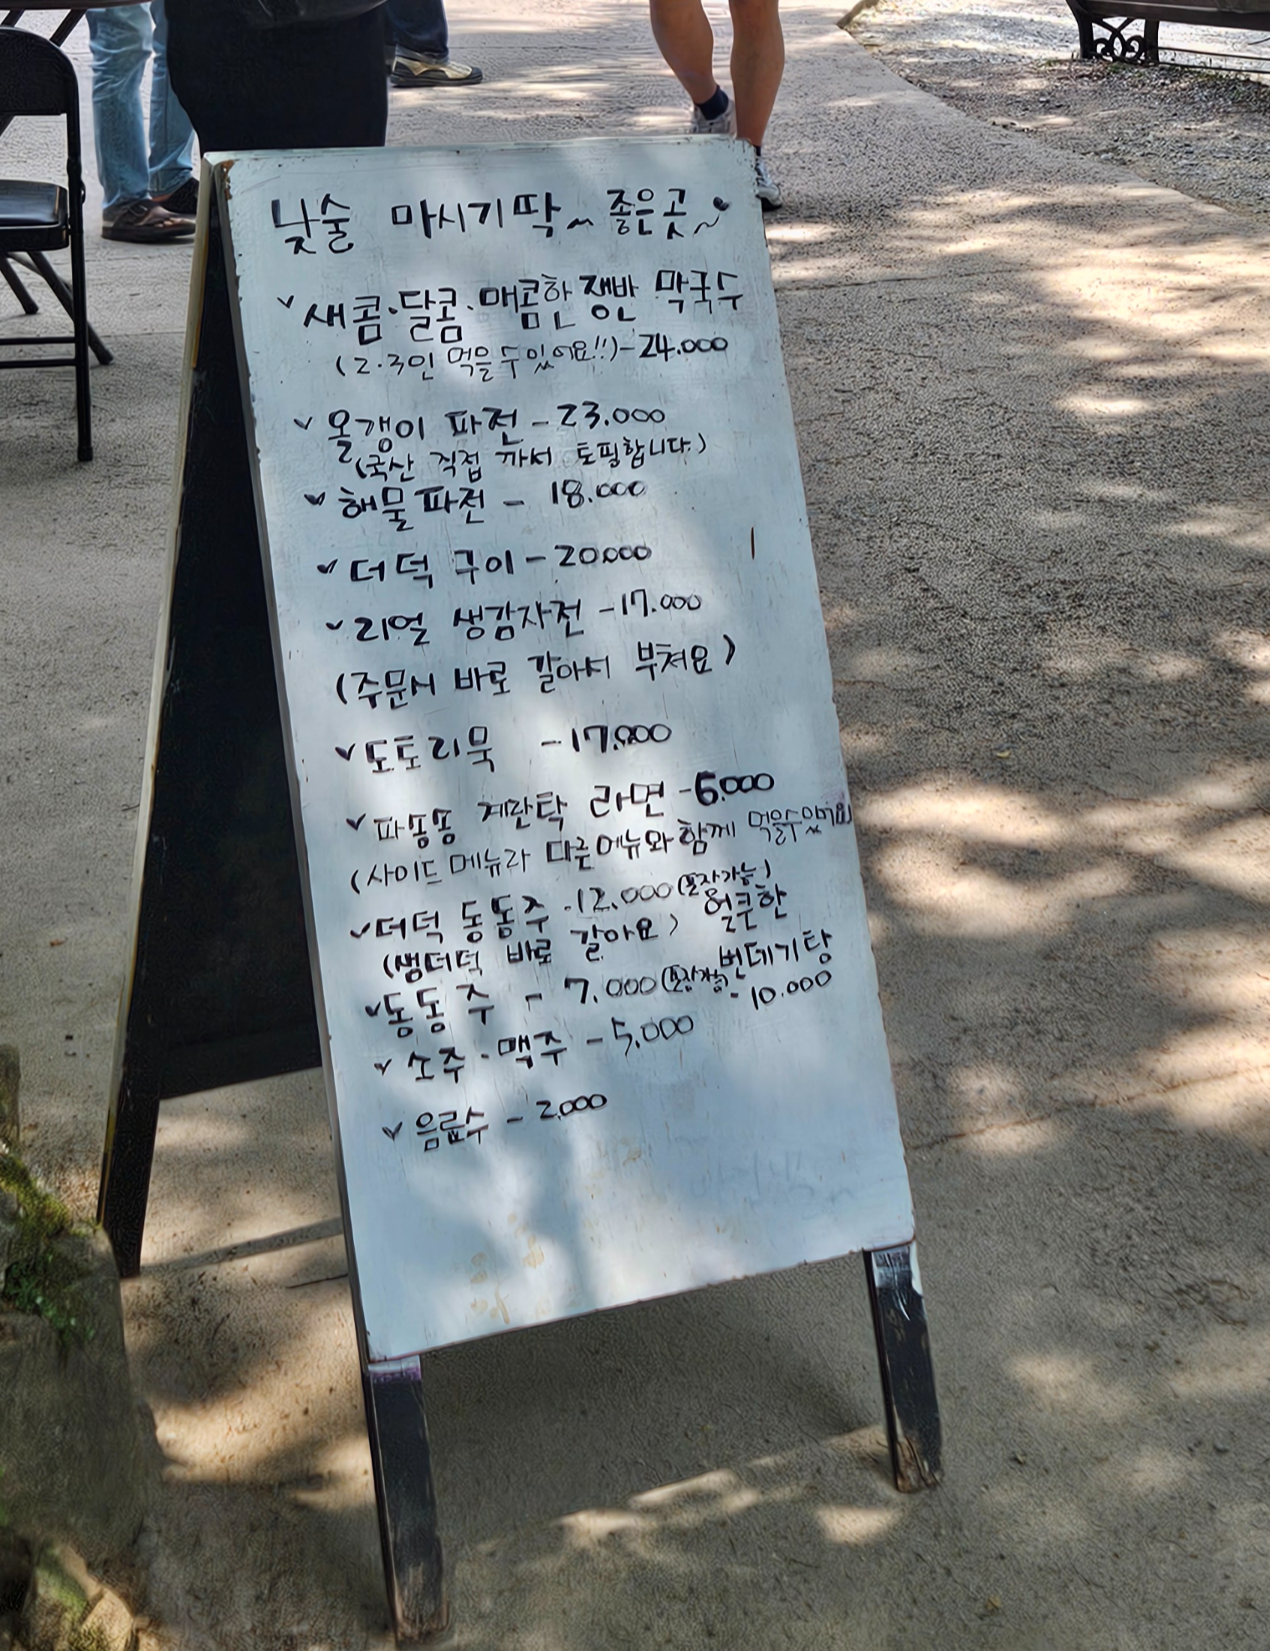 낮술 마시기 딱~ 좋은곳~
새콤·달콤·매콤한 쟁반 막국수
(2·3인 먹을 수 있어요!!)-24.000
올갱이 파전 - 23.000
(국산 직접 까서 토핑합니다.)
해물파전 - 18.000
더덕 구이 - 20.000
리얼 생감자전 - 17.000
(주문시 바로 갈아서 부쳐요)
도토리묵 - 17.000
파송송 계란탁 라면 - 6.000
(사이드 메뉴라 다른메뉴와 함께 먹을수있어요)
더덕 동동주 - 12.000 (포장가능)
(생더덕 바로 갈아요)
얼큰한
번데기탕
- 10.000
동동주 - 7.000 (포장가능)
소주·맥주 - 5.000
음료수 - 2.000